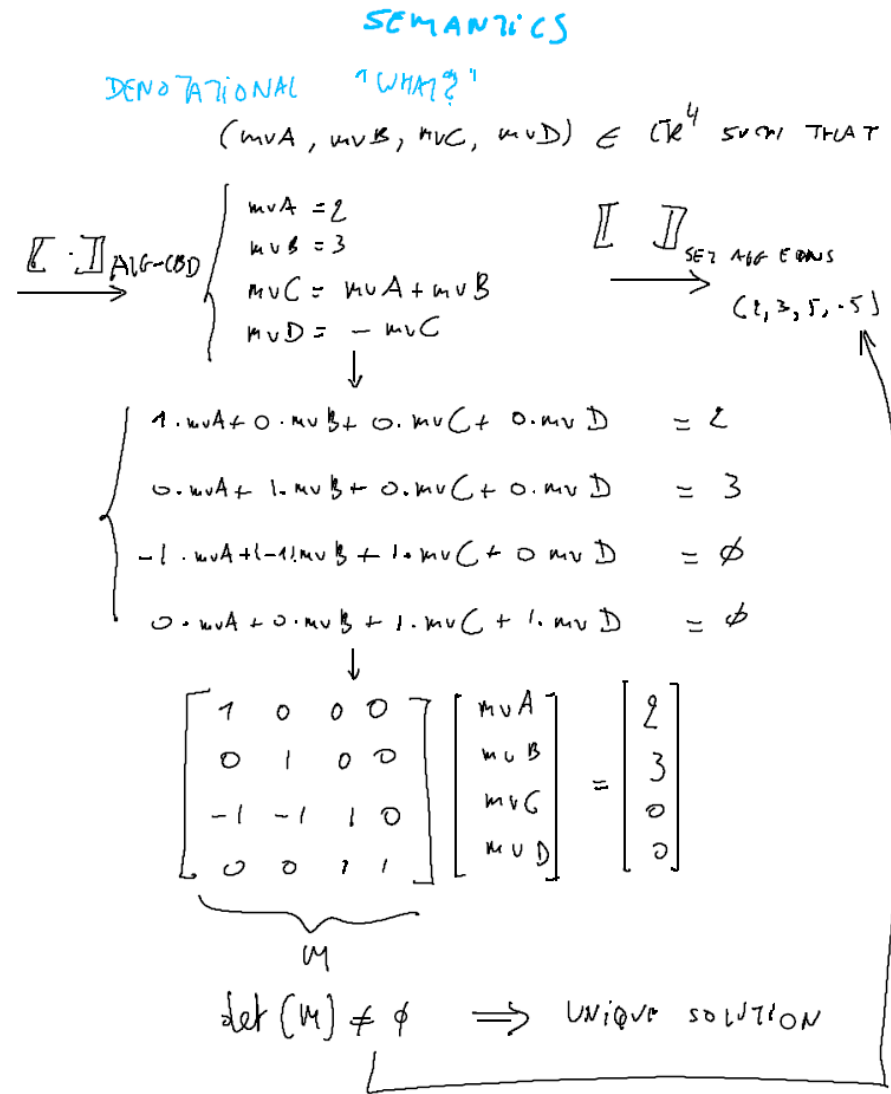 SEMANTICS
DENOTATIONAL "WHAT?"
(mvA, mvB, mvC, mvD) ∈ ℝ⁴ SUCH THAT
⟦·⟧ALG-CBD
mvA = 2
mvB = 3
mvC = mvA + mvB
mvD = - mvC
⟦ ⟧SET ALG EQNS
(2, 3, 5, -5)
1·mvA + 0·mvB + 0·mvC + 0·mvD = 2
0·mvA + 1·mvB + 0·mvC + 0·mvD = 3
-1·mvA + (-1)·mvB + 1·mvC + 0 mvD = ∅
0·mvA + 0·mvB + 1·mvC + 1·mvD = ∅
1 0 0 0 mvA 2
0 1 0 0 mvB = 3
-1 -1 1 0 mvC 0
0 0 1 1 mvD 0
M
det(M) ≠ ∅ ⟹ UNIQUE SOLUTION